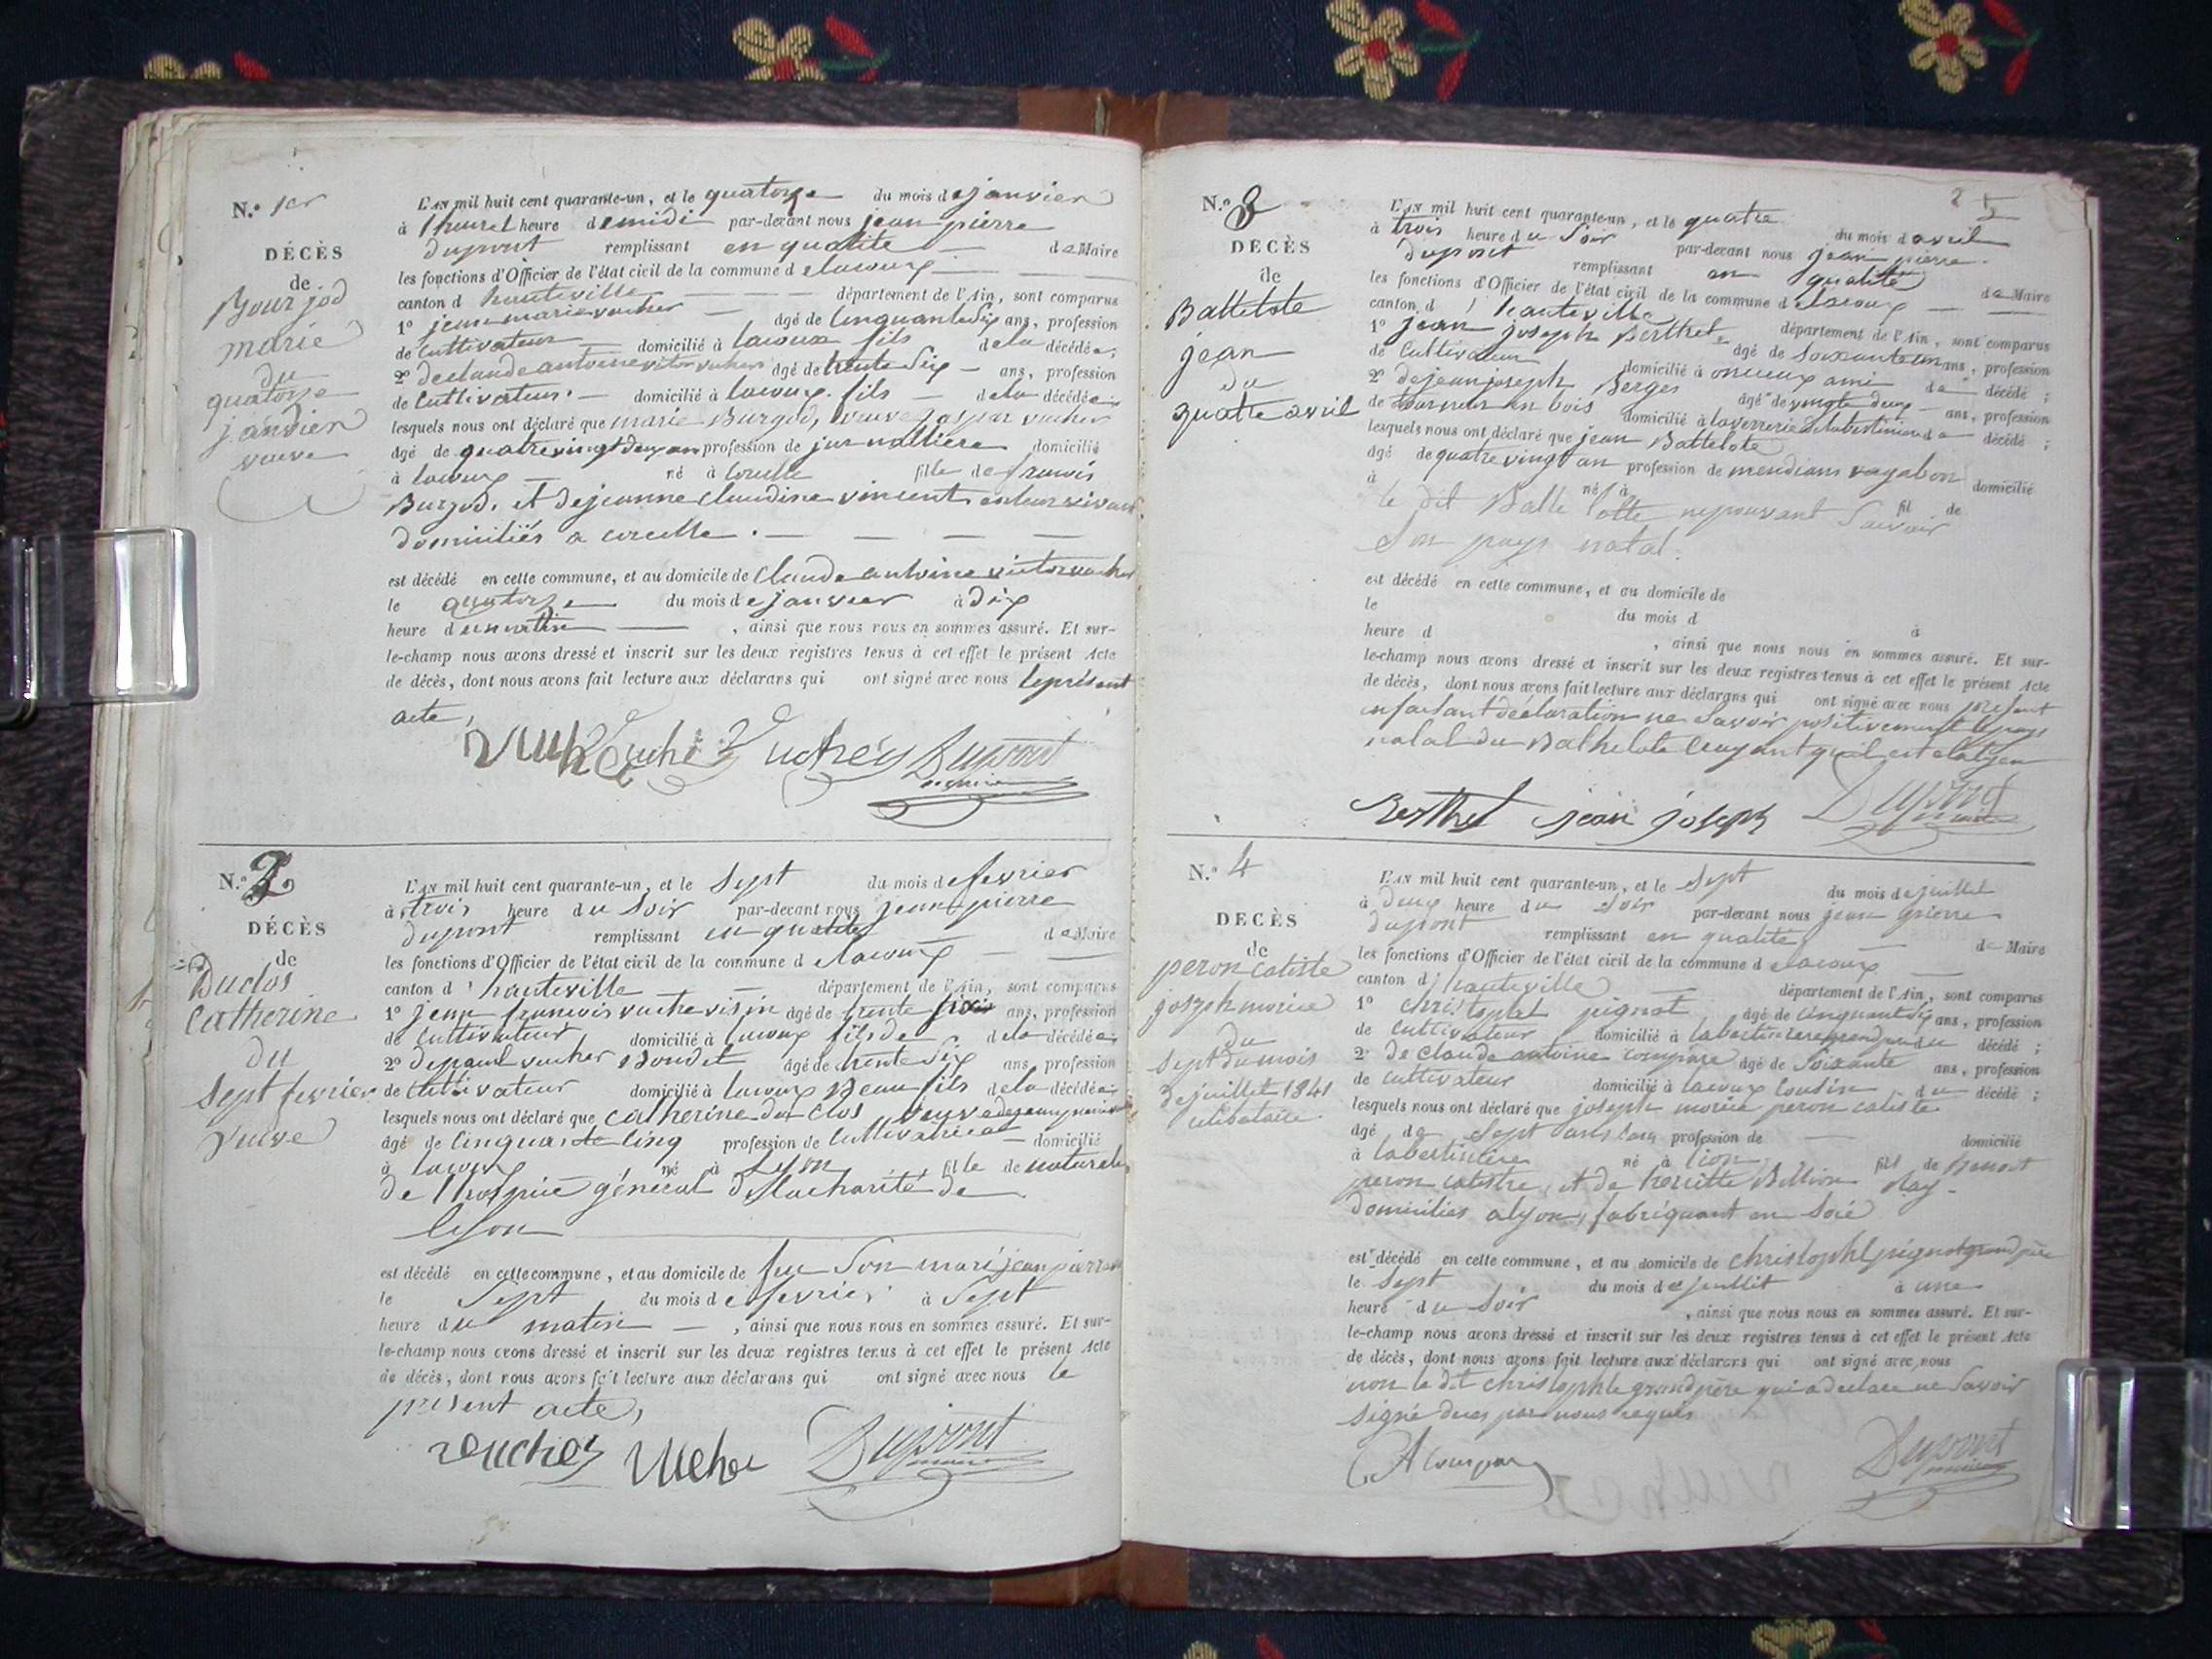 N.º 1er
DÉCÈS
de
Bourjod
marie
du
quatorze
janvier
veuve
L'AN mil huit cent quarante-un, et le quatorze du mois de janvier
à 1 heure heure de midi par-devant nous jean pierre
dupont remplissant en qualité de Maire
les fonctions d'Officier de l'état civil de la commune de lacoux
canton d hauteville département de l'Ain, sont comparus
1º jean marie vucher âgé de cinquante six ans, profession
de cultivateur domicilié à lacoux fils de la décédée;
2º de claude antoine victor vucher âgé de trente six ans, profession
de cultivateur domicilié à lacoux fils de la décédée
lesquels nous ont déclaré que marie Burgod, veuve gaspar vucher
âgé de quatre vingt deux an profession de journallière domicilié
à lacoux né à corcelle fille de francois
Burgod, et de jeanne claudine vincent en leur vivant
domiciliés a corcelle.
est décédé en cette commune, et au domicile de Claude antoine victor vucher
le quatorze du mois de janvier à dix
heure du matin , ainsi que nous nous en sommes assuré. Et sur-
le-champ nous avons dressé et inscrit sur les deux registres tenus à cet effet le présent Acte
de décès, dont nous avons fait lecture aux déclarans qui ont signé avec nous le présent
acte,
Dupont
N.º 2
DÉCÈS
de
Duclos
Catherine
du
Sept fevrier
veuve
L'AN mil huit cent quarante-un, et le Sept du mois de fevrier
à trois heure du Soir par-devant nous jean pierre
dupont remplissant en qualité de Maire
les fonctions d'Officier de l'état civil de la commune d elacoux
canton d hauteville département de l'Ain, sont comparus
1º jean francois vucher âgé de trente ans, profession
de cultivateur domicilié à lacoux fils de de la décédée
2º de paul vucher Bondet âgé de trente Six ans, profession
de Cultivateur domicilié à lacoux Beau fils de la décédée
lesquels nous ont déclaré que Catherine du Clos veuve de jean pierre
âgé de Cinquante Cinq profession de Cultivatrice domicilié
à lacoux né à Lyon fille de naturele
de l'hospice général de la charité de
lyon
est décédé en cette commune, et au domicile de feu Son mari jean pierre
le Sept du mois de fevrier à Sept
heure du matin , ainsi que nous nous en sommes assuré. Et sur-
le-champ nous avons dressé et inscrit sur les deux registres tenus à cet effet le présent Acte
de décès, dont nous avons fait lecture aux déclarans qui ont signé avec nous le
present acte,
vucher Vucher Dupont
N.º 3
DÉCÈS
de
Battelote
jean
du
quatre avril
25
L'AN mil huit cent quarante-un, et le quatre du mois d avril
à trois heure du Soir par-devant nous jean pierre
dupont remplissant en qualité de Maire
les fonctions d'Officier de l'état civil de la commune de lacoux
canton d hauteville département de l'Ain, sont comparus
1º jean joseph Berthet âgé de Soixante un ans, profession
de Cultivateur domicilié à ami décédé;
2º de jean joseph Berges âgé de vingt deux ans, profession
de tourneur en bois domicilié à la verrerie décédé;
lesquels nous ont déclaré que jean Battelote
âgé de quatre vingt an profession de mendians vagabon domicilié
à né à fil de
le dit Battelotte ne pouvant Savoir
Son pays natal.
est décédé en cette commune, et au domicile de
le du mois d à
heure d , ainsi que nous nous en sommes assuré. Et sur-
le-champ nous avons dressé et inscrit sur les deux registres tenus à cet effet le présent Acte
de décès, dont nous avons fait lecture aux déclarans qui ont signé avec nous present
en faisant déclaration ne Savoir positivement le pays
natal du Bathelote Croyant qu'il est
Berthet jean joseph Dupont
N.º 4
DECÈS
de
peron catiste
joseph morice
du
Sept du mois
de juillet 1841
celibataire
L'AN mil huit cent quarante-un, et le Sept du mois de juillet
à Deux heure du Soir par-devant nous jean pierre
dupont remplissant en qualité de Maire
les fonctions d'Officier de l'état civil de la commune d elacoux
canton d hauteville département de l'Ain, sont comparus
1º christophe pignot âgé de cinquante six ans, profession
de cultivateur domicilié à grand du décédé;
2º de claude antoine compare âgé de Soixante ans, profession
de cultivateur domicilié à lacoux Cousin du décédé;
lesquels nous ont déclaré que joseph morice peron catiste
âgé de Sept profession de domicilié
à labertinière né à lion fils de benoit
peron catistre, et de henriette Billion
domiciliés a lyon, fabriquant en Soie
est décédé en cette commune, et au domicile de christophe pignot grand père
le Sept du mois de juillit à une
heure du Soir , ainsi que nous nous en sommes assuré. Et sur-
le-champ nous avons dressé et inscrit sur les deux registres tenus à cet effet le présent Acte
de décès, dont nous avons fait lecture aux déclarans qui ont signé avec nous
non le dit christophe grand père qui a declare ne Savoir
Signé par nous requis
Dupont